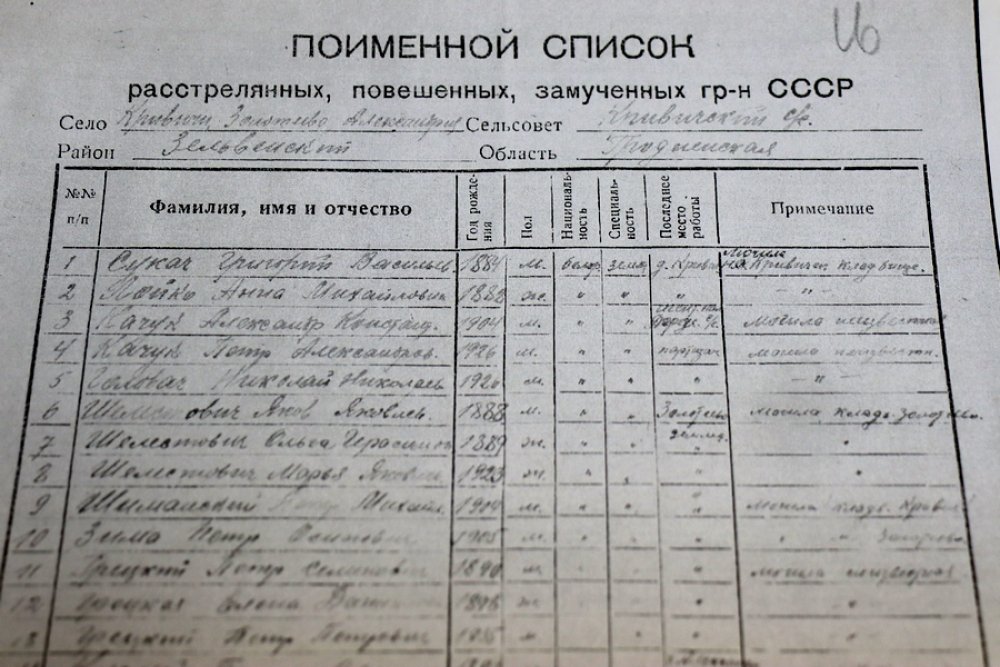 16
ПОИМЕННОЙ СПИСОК
расстрелянных, повешенных, замученных гр-н СССР
Село Кривичи Золотеево Александрия Сельсовет Кривичский с/с.
Район Зельвенский Область Гродненская
№№ п/п Фамилия, имя и отчество Год рожде-ния Пол Национальность Специальность Последнее место работы Примечание
1 Сукач Григорий Василье 1884 м. белор земл д. Кривич могила на Кривичск кладбище.
2 Лойко Анна Михайловн 1888 ж. " " " - " -
3 Качук Александр Констанд. 1904 м. " " могила неизвестна
4 Качук Петр Александров. 1926 м. " " партизан могила неизвестн.
5 Головач Николай Николаев 1926 м. " " - " -
6 Шелестович Яков Яковлев. 1888 м. " " Золотеево могила кладб. Золотеево.
7 Шелестович Ольга Герасимов 1889 ж. " " земл. "
8 Шелестович Марья Яковлев 1923 ж " " " "
9 Шиманский Петр Михайл. 1904 м. " " " могила кладб. Кривич
10 Зима Петр Осипович 1905 м. " " " "
11 Грецкий Петр Семенович 1890 м. " " " могила неизвестна
12 Елена 1898 ж " " "
13 Грецкий Петр Петрович 1925 м " " "